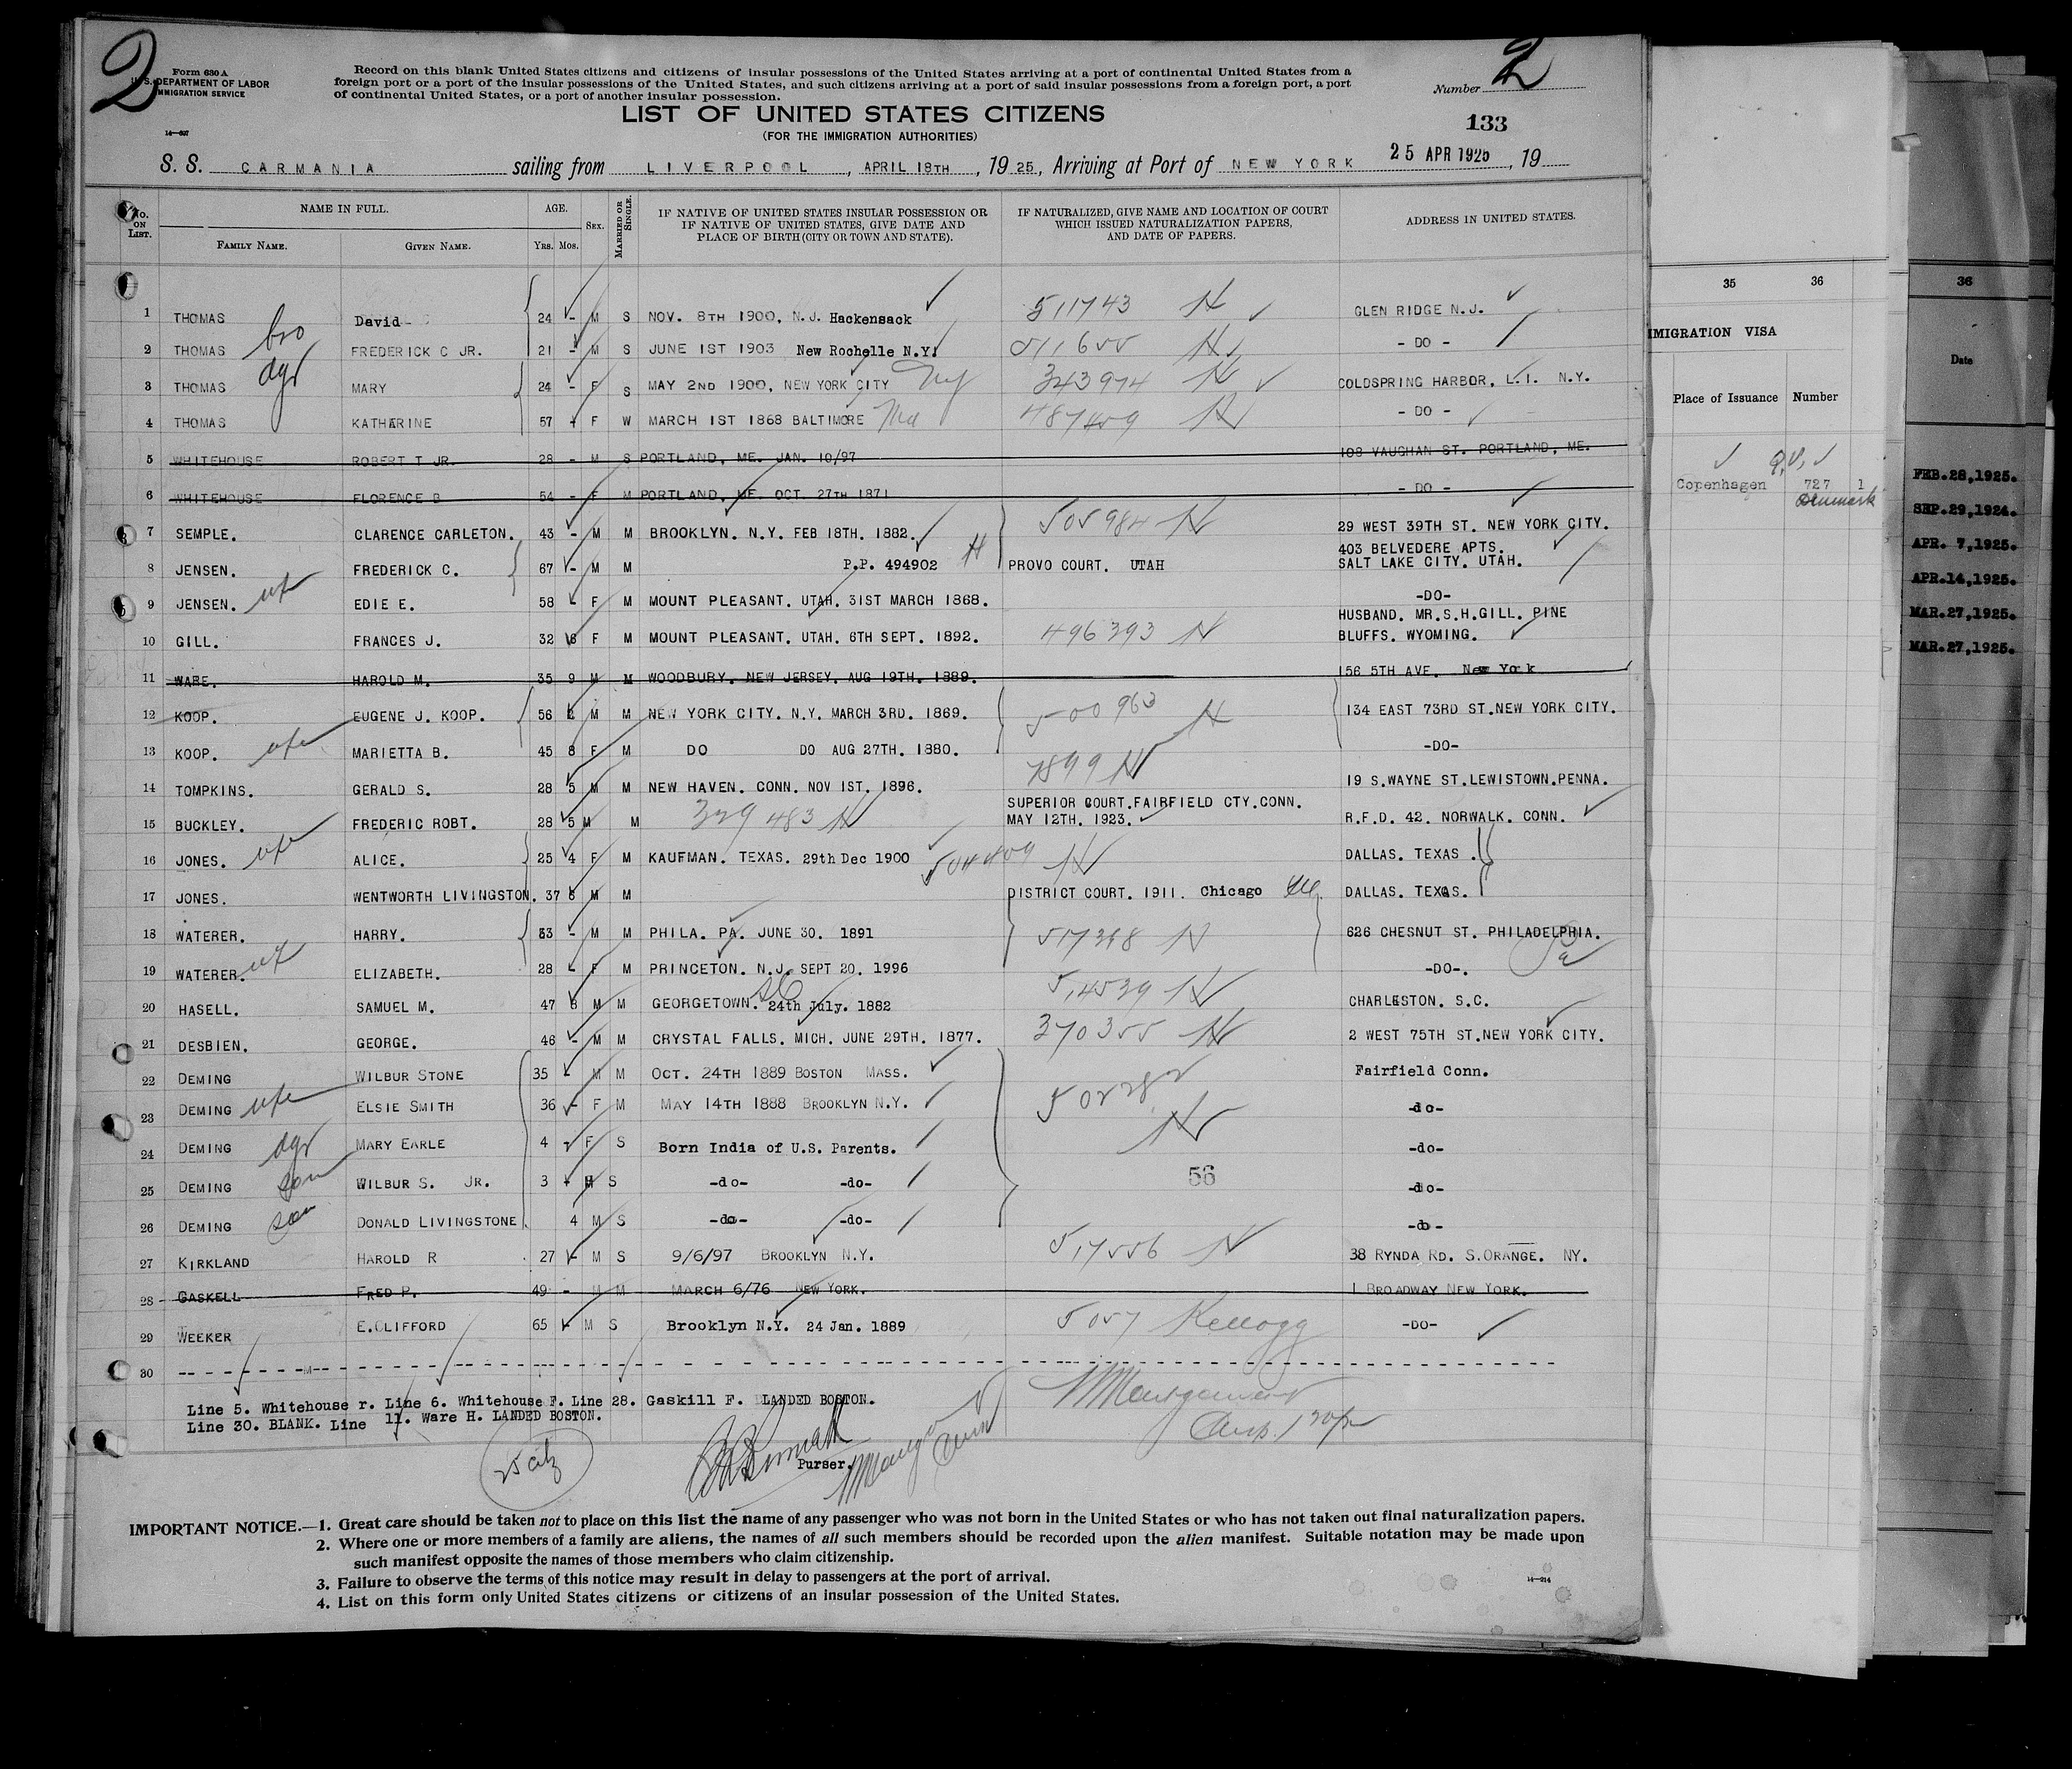 2
Form 630 A
U. S. DEPARTMENT OF LABOR
IMMIGRATION SERVICE
14—607
Record on this blank United States citizens and citizens of insular possessions of the United States arriving at a port of continental United States from a
foreign port or a port of the insular possessions of the United States, and such citizens arriving at a port of said insular possessions from a foreign port, a port
of continental United States, or a port of another insular possession.
Number 2
LIST OF UNITED STATES CITIZENS
(FOR THE IMMIGRATION AUTHORITIES)
133
S. S. CARMANIA sailing from LIVERPOOL, APRIL 18TH, 1925, Arriving at Port of NEW YORK 25 APR 1925, 19
No. ON LIST. NAME IN FULL. FAMILY NAME. GIVEN NAME. AGE. Yrs. Mos. SEX. MARRIED OR SINGLE. IF NATIVE OF UNITED STATES INSULAR POSSESSION OR IF NATIVE OF UNITED STATES, GIVE DATE AND PLACE OF BIRTH (CITY OR TOWN AND STATE). IF NATURALIZED, GIVE NAME AND LOCATION OF COURT WHICH ISSUED NATURALIZATION PAPERS, AND DATE OF PAPERS. ADDRESS IN UNITED STATES.
1 THOMAS David 24 - M S NOV. 8TH 1900, N.J. Hackensack 511743 N GLEN RIDGE N.J.
2 THOMAS bro FREDERICK C JR. 21 - M S JUNE 1ST 1903 New Rochelle N.Y. 511655 N - DO -
3 THOMAS dgr MARY 24 - F S MAY 2ND 1900, NEW YORK CITY NY 343974 N COLDSPRING HARBOR, L.I. N.Y.
4 THOMAS KATHARINE 57 F W MARCH 1ST 1868 BALTIMORE Md 487409 N - DO -
5 WHITEHOUSE ROBERT T JR. 28 - M S PORTLAND, ME. JAN. 10/97 108 VAUGHAN ST. PORTLAND, ME.
6 WHITEHOUSE FLORENCE B 54 - F M PORTLAND, ME. OCT. 27TH 1871 - DO -
7 SEMPLE. CLARENCE CARLETON. 43 - M M BROOKLYN. N.Y. FEB 18TH. 1882. 505984 N 29 WEST 39TH ST. NEW YORK CITY.
8 JENSEN. FREDERICK C. 67 - M M P.P. 494902 N PROVO COURT. UTAH 403 BELVEDERE APTS. SALT LAKE CITY. UTAH.
9 JENSEN. wf EDIE E. 58 - F M MOUNT PLEASANT. UTAH. 31ST MARCH 1868. -DO-
10 GILL. FRANCES J. 32 6 F M MOUNT PLEASANT. UTAH. 6TH SEPT. 1892. 496393 N HUSBAND. MR.S.H.GILL. PINE BLUFFS. WYOMING.
11 WARE. HAROLD M. 35 9 M M WOODBURY. NEW JERSEY. AUG 19TH. 1889. 156 5TH AVE. New York
12 KOOP. EUGENE J. KOOP. 56 2 M M NEW YORK CITY. N.Y. MARCH 3RD. 1869. 500963 N 134 EAST 73RD ST.NEW YORK CITY.
13 KOOP. wfe MARIETTA B. 45 8 F M DO DO AUG 27TH. 1880. -DO-
14 TOMPKINS. GERALD S. 28 5 M M NEW HAVEN. CONN. NOV 1ST. 1896. 7899 N 19 S.WAYNE ST.LEWISTOWN.PENNA.
15 BUCKLEY. FREDERIC ROBT. 28 5 M M 329483 N SUPERIOR COURT.FAIRFIELD CTY.CONN. MAY 12TH. 1923. R.F.D. 42. NORWALK. CONN.
16 JONES. wfe ALICE. 25 4 F M KAUFMAN. TEXAS. 29th Dec 1900 504409 N DALLAS. TEXAS.
17 JONES. WENTWORTH LIVINGSTON. 37 8 M M DISTRICT COURT. 1911. Chicago Ill. DALLAS. TEXAS.
18 WATERER. HARRY. 33 - M M PHILA. PA. JUNE 30. 1891 517368 N 626 CHESNUT ST. PHILADELPHIA. Pa
19 WATERER. wf ELIZABETH. 28 - F M PRINCETON. N.J. SEPT 20. 1996 -DO-.
20 HASELL. SAMUEL M. 47 8 M M GEORGETOWN. SC 24th July. 1882 514539 N CHARLESTON. S.C.
21 DESBIEN. GEORGE. 46 - M M CRYSTAL FALLS. MICH. JUNE 29TH. 1877. 370355 N 2 WEST 75TH ST.NEW YORK CITY.
22 DEMING WILBUR STONE 35 - M M OCT. 24TH 1889 BOSTON MASS. Fairfield Conn.
23 DEMING wfe ELSIE SMITH 36 - F M MAY 14TH 1888 BROOKLYN N.Y. N -do-
24 DEMING dgr MARY EARLE 4 - F S Born India of U.S. Parents. -do-
25 DEMING son WILBUR S. JR. 3 M S -do- -do- 56 -do-
26 DEMING son DONALD LIVINGSTONE 4 M S -do- -do- -do-
27 KIRKLAND HAROLD R 27 - M S 9/6/97 BROOKLYN N.Y. 517556 N 38 RYNDA RD. S.ORANGE. NY.
28 GASKELL FRED P. 49 - M M MARCH 6/76 NEW YORK. 1 BROADWAY NEW YORK.
29 WEEKER E.CLIFFORD 65 - M S Brooklyn N.Y. 24 Jan. 1889 5057 Kellogg -DO-
30
Line 5. Whitehouse r. Line 6. Whitehouse F. Line 28. Gaskill F. LANDED BOSTON.
Line 30. BLANK. Line 11. Ware H. LANDED BOSTON.
25 citz
Purser.
IMPORTANT NOTICE.—1. Great care should be taken not to place on this list the name of any passenger who was not born in the United States or who has not taken out final naturalization papers.
2. Where one or more members of a family are aliens, the names of all such members should be recorded upon the alien manifest. Suitable notation may be made upon
such manifest opposite the names of those members who claim citizenship.
3. Failure to observe the terms of this notice may result in delay to passengers at the port of arrival.
4. List on this form only United States citizens or citizens of an insular possession of the United States.
14—214
35 36
IMMIGRATION VISA
Place of Issuance Number
Copenhagen 727 1
Denmark
36
Date
FEB.28,1925.
SEP.29,1924.
APR. 7,1925.
APR.14,1925.
MAR.27,1925.
MAR.27,1925.